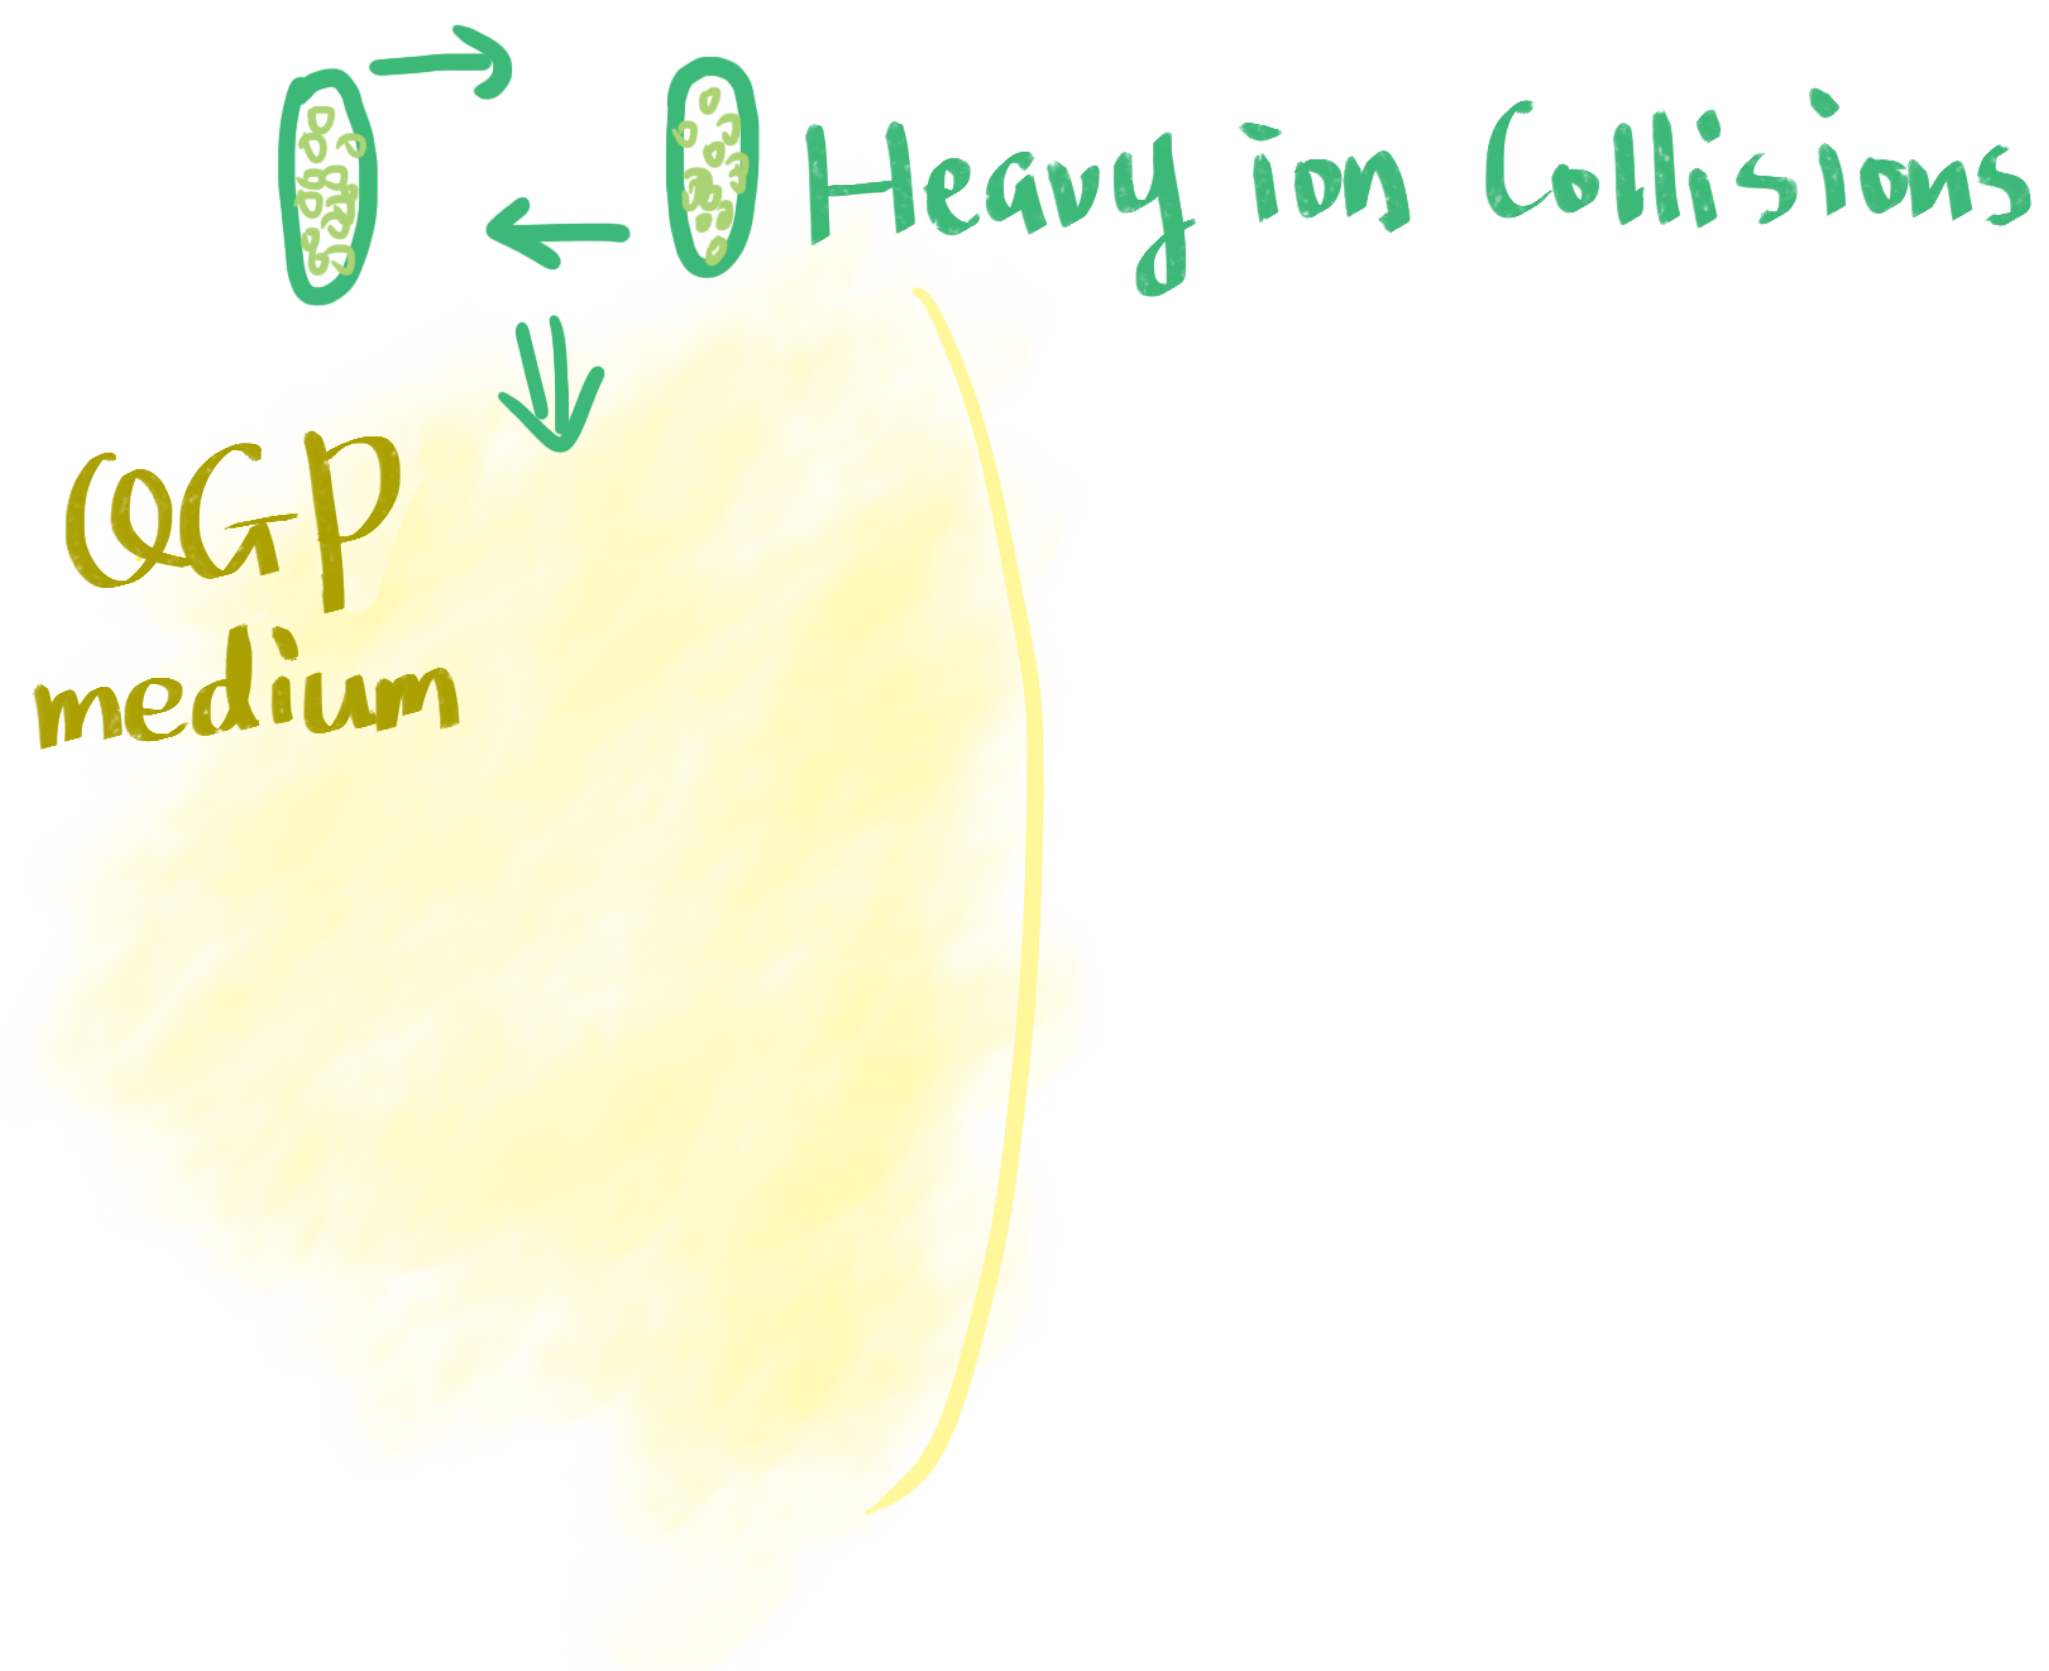 Heavy ion Collisions
QGP
medium